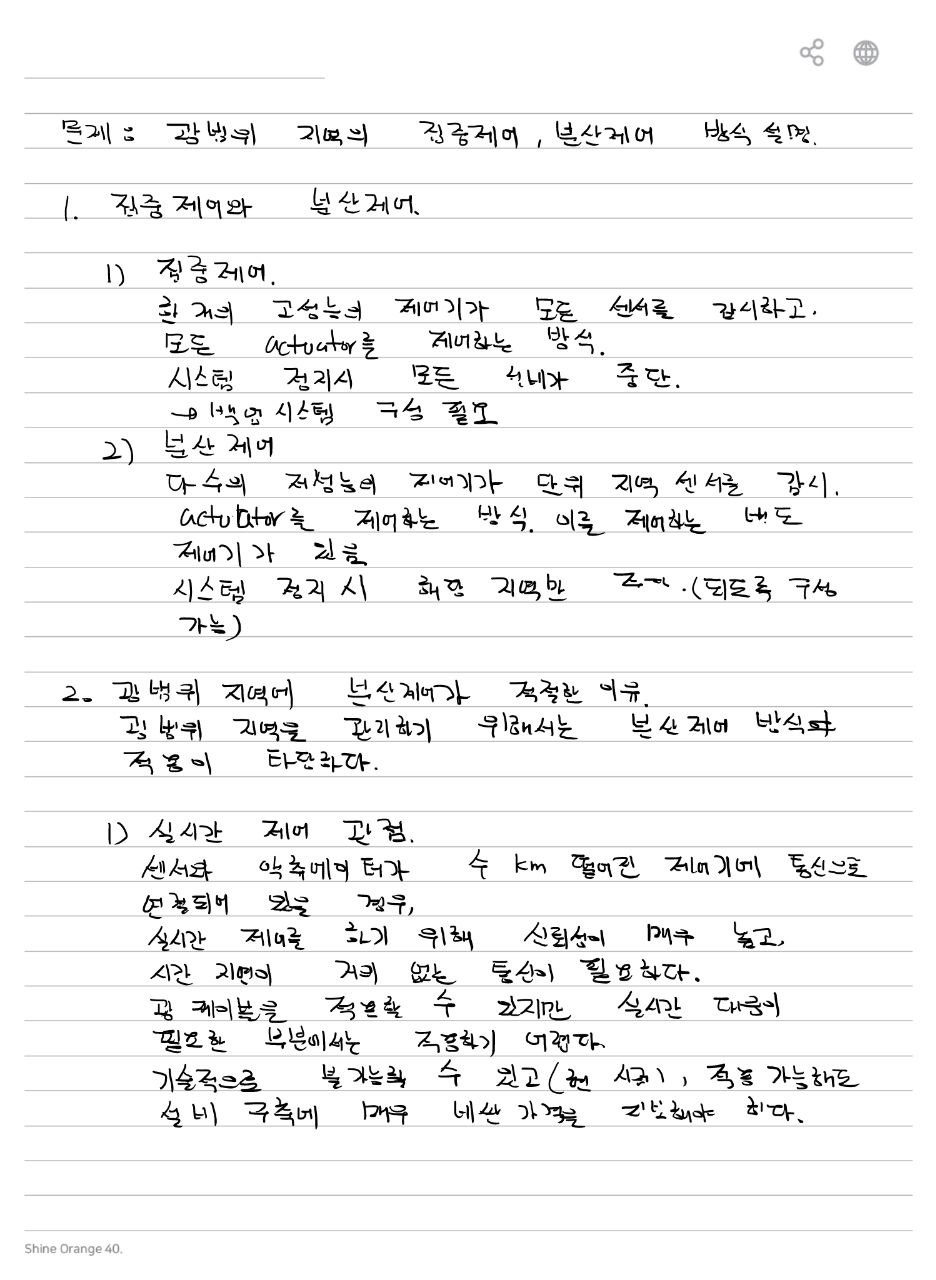 문제 : 광범위 지역의 집중제어, 분산제어 방식 설명.
1. 집중제어와 분산제어.
1) 집중제어.
한 개의 고성능의 제어기가 모든 센서를 감시하고.
모든 actuator를 제어하는 방식.
시스템 정지시 모든 설비가 중단.
→ 백업시스템 구성 필요
2) 분산제어
다수의 저성능의 제어기가 단위 지역 센서를 감시.
actuator를 제어하는 방식. 이를 제어하는 별도
제어기가 있음
시스템 정지 시 해당 지역만 .(되도록 구성
가능)
2. 광범위 지역에 분산제어가 적절한 이유.
광범위 지역을 관리하기 위해서는 분산제어 방식의
적용이 타당하다.
1) 실시간 제어 관점.
센서와 악츄에이터가 수 km 떨어진 제어기에 통신으로
연결되어 있을 경우,
실시간 제어를 하기 위해 신뢰성이 매우 높고,
시간 지연이 거의 없는 통신이 필요하다.
광 케이블을 적용할 수 있지만 실시간 대응이
필요한 부분에서는 적용하기 어렵다.
기술적으로 불가능할 수 있고(현 시점), 적용 가능해도
설비 구축에 매우 비싼 가격을 지불해야 한다.
Shine Orange 40.